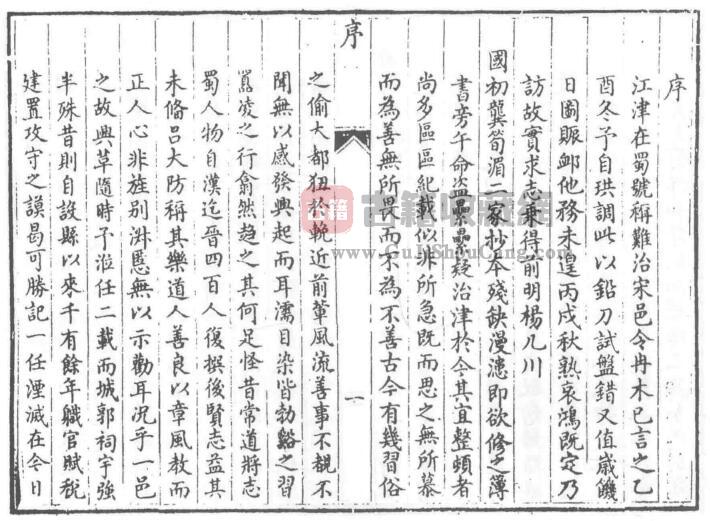 序
江津在蜀號稱難治宋邑令冉木已言之乙
酉冬予自珙調此以鉛刀試盤錯又值嵗饑
日圖賑卹他務未遑丙戌秋熟哀鴻既定乃
訪故實求志乗得前明楊几川
國初龔笱湄二家抄本殘缺漫漶即欲修之簿
書旁午命盜纍纍疑治津於今其宜整頓者
尚多區區紀載似非所急既而思之無所慕
而為善無所畏而不為不善古今有幾習俗
序
一
之偷大都狃於輓近前輩風流善事不覩不
聞無以感發興起而耳濡目染皆勃谿之習
嚚凌之行翕然趋之其何足怪昔常道將志
蜀人物自漢迄晉四百人復撰後賢志益其
未俻呂大防稱其樂道人善良以章風教而
正人心非旌别淑慝無以示勸耳況乎一邑
之故興革隨時予涖任二載而城郭祠宇強
半殊昔則自設縣以來千有餘年職官賦稅
建置攻守之謨曷可勝記一任湮滅在今日
古籍
古籍收藏網
www.GuJiShouCang.com